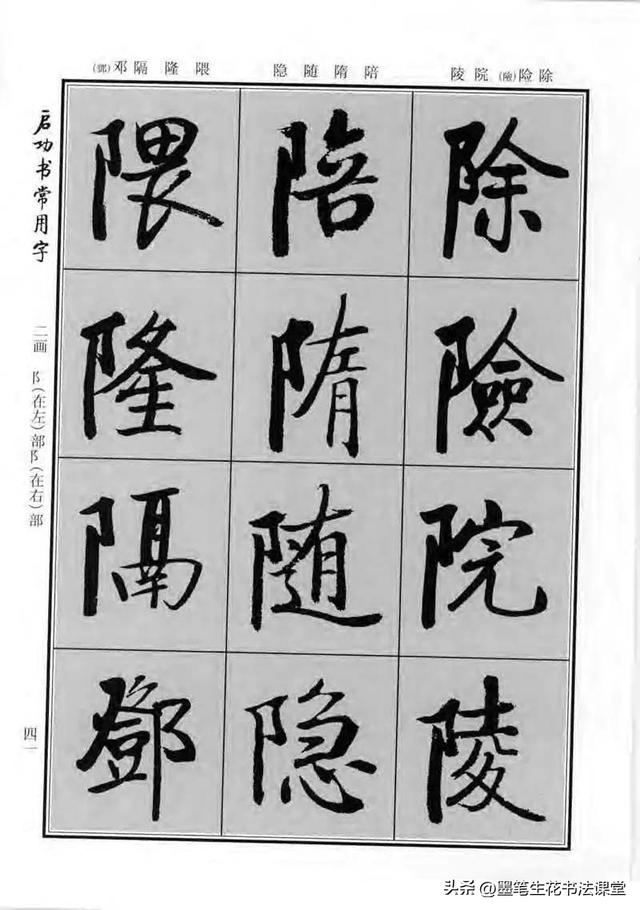 除险(險)院陵 陪隋随隐 隈隆隔邓(鄧)
除險院陵
陪隋随隐
隈隆隔鄧
启功书常用字
二画 阝(在左)部阝(在右)部
四一
头条 @墨笔生花书法课堂